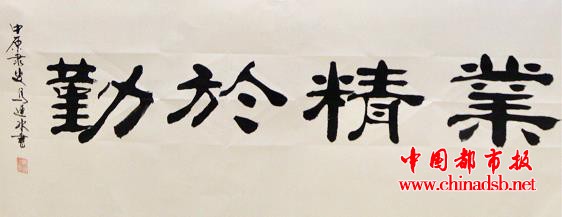 業精於勤
中原隶叟馬水書
中国都市报
www.chinadsb.net